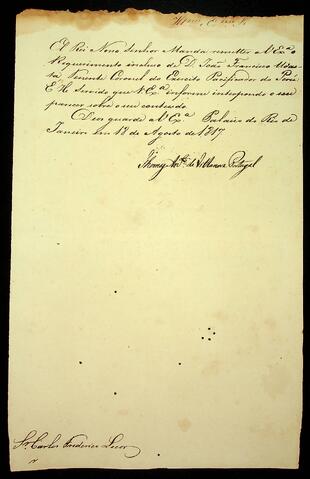 El Rei Nosso Senhor Manda remetter a V. Exª o
Requerimento incluso de D. João Francisco
Tenente Coronel do Exercito Pacificador do Perú
E He Servido que V Exª informe interpondo o seu
parecer sobre o seu contendo.
Deos guarde a V. Exª Palacio do Rio de
Janeiro em 18 de Agosto de 1817
Thomaz Antº de Villanova Portugal
Sr Carlos Frederico Lecor